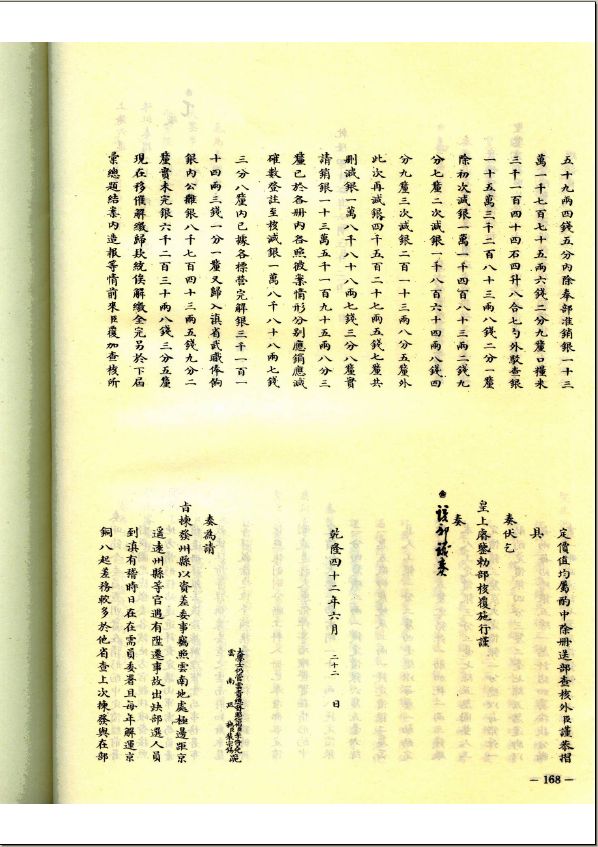 五十九兩四錢五分內除奉部准銷銀一十三
萬一千七百七十五兩六錢二分九釐口糧米
三千一百四十四石四升八合七勺外駁查銀
一十五萬三千二百八十三兩八錢二分一釐
除初次減銀一萬一千四百八十三兩二錢九
分七釐二次減銀一千八百六十四兩八錢四
分九釐三次減銀二百一十三兩八分五釐外
此次再減銀四千五百二十七兩五錢七釐共
刪減銀一萬八千八十八兩七錢三分八釐實
請銷銀一十三萬五千一百九十五兩八分三
釐已於各冊內各照彼案情形分別應銷應減
確數登註至核減銀一萬八千八十八兩七錢
三分八釐內已據各標營完解銀三千一百一
十四兩三錢一分一釐又歸入滇省武職俸餉
銀內公攤銀八千七百四十三兩五錢九分二
釐實未完銀六千二百三十兩八錢三分五釐
現在移催解繳歸款統俟解繳全完另於下屆
彙總題結案內造報等情前來臣覆加查核所
定價值均屬酌中除冊送部查核外臣謹恭摺
具
奏伏乞
皇上睿鑒勅部核覆施行謹
奏
該部議奏
乾隆四十二年六月 二十二 日
奏為請
旨揀發州縣以資差委事竊照雲南地處極邊距京
遙遠州縣等官遇有陞遷事故出缺部選人員
到滇有稽時日在在需員委署且每年解運京
銅八起差務較多於他省查上次揀發與在部
— 168 —